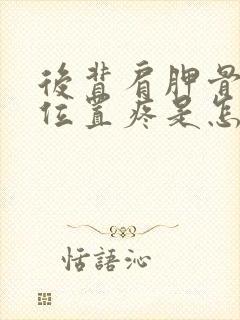 後背肩胛骨
位置疼是怎
恬語沁